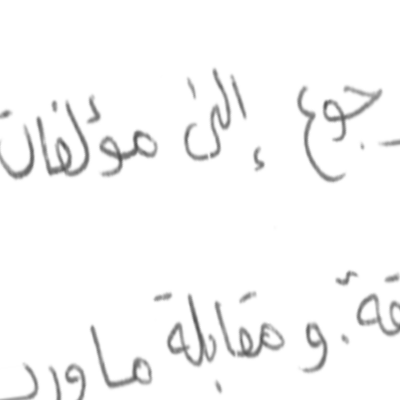 جوع إلى مؤلفات
قة. و مقابلة ما ورد